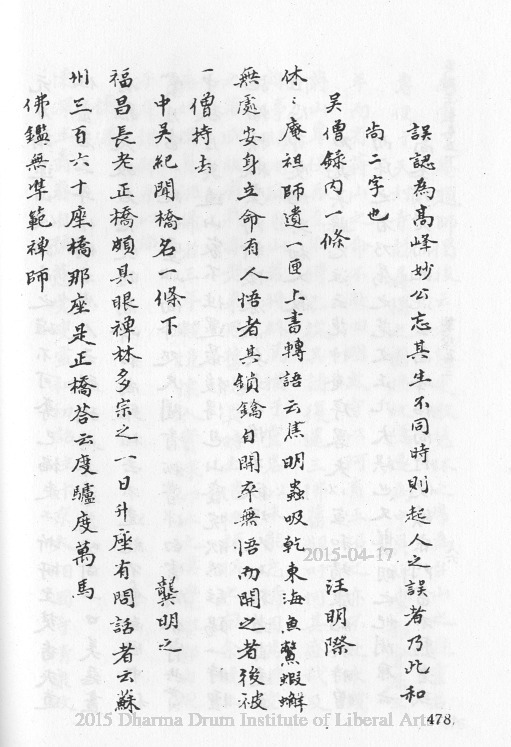 誤認為高峰妙公忘其生不同時則起人之誤者乃此和
尚二字也
吳僧錄內一條
汪明際
休庵祖師遺一匣上書轉語云焦明蟲吸乾東海魚鱉蝦蠏
無處安身立命有人悟者其鎖鑰自開卒無悟而開之者後被
一僧持去
中吳紀聞橋名條下
龔明之
福昌長老正橋頗具眼禪林多宗之一日升座有問話者云蘇
州三百六十座橋那座是正橋答云度驢度萬馬
佛鑑無準範禪師
2015-04-17
2015 Dharma Drum Institute of Liberal Arts
478